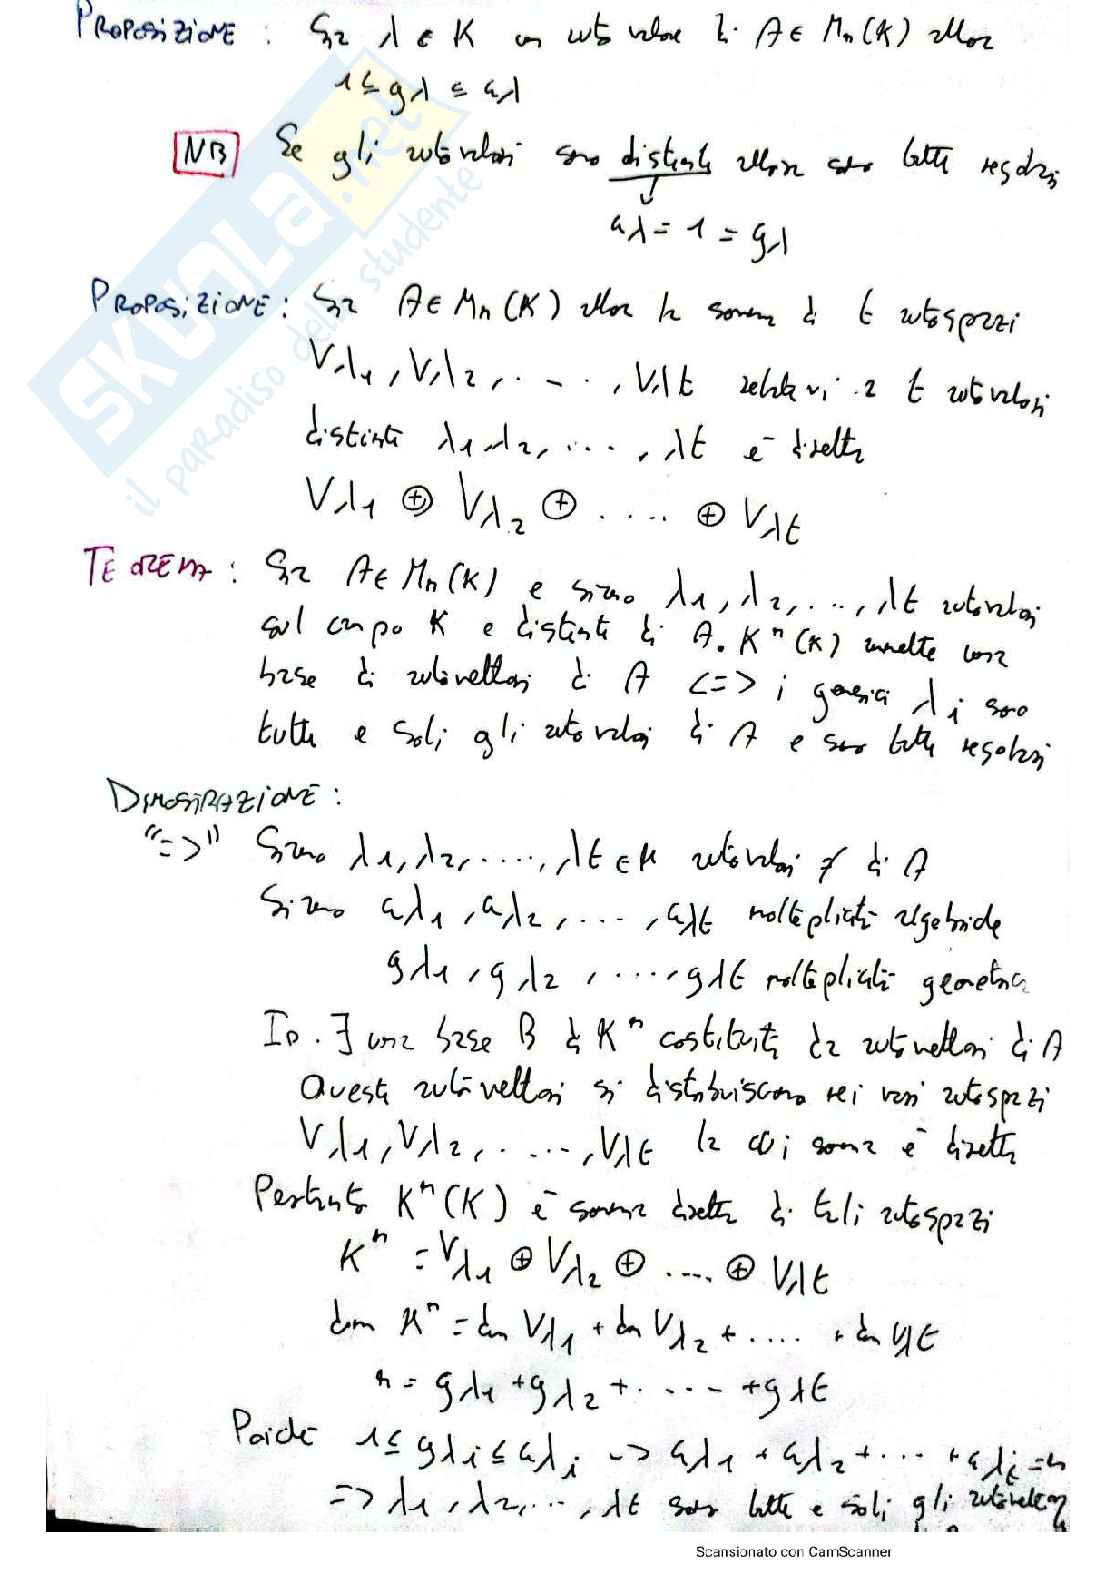 PROPOSIZIONE : Sia λ ∈ K un autovalore di A ∈ Mn(K) allora
1 ≤ gλ ≤ aλ
NB Se gli autovalori sono distinti allora sono tutti regolari
aλ = 1 = gλ
PROPOSIZIONE : Sia A ∈ Mn(K) allora la somma di t autospazi
Vλ1, Vλ2, ...., Vλt relativi a t autovalori
distinti λ1, λ2, ...., λt è diretta
Vλ1 ⊕ Vλ2 ⊕ .... ⊕ Vλt
TEOREMA : Sia A ∈ Mn(K) e siano λ1, λ2, ..., λt autovalori
sul campo K e distinti di A. K^n(K) ammette una
base di autovettori di A <=> i generici λi sono
tutti e soli gli autovalori di A e sono tutti regolari
DIMOSTRAZIONE :
"=>" Siano λ1, λ2, ...., λt ∈ K autovalori ≠ di A
Siano aλ1, aλ2, ...., aλt molteplicità algebriche
gλ1, gλ2, ...., gλt molteplicità geometrica
Ip. ∃ una base B di K^n costituita da autovettori di A
Questi autovettori si distribuiscono nei vari autospazi
Vλ1, Vλ2, ....., Vλt la cui somma è diretta
Pertanto K^n(K) è somma diretta di tali autospazi
K^n = Vλ1 ⊕ Vλ2 ⊕ .... ⊕ Vλt
dim K^n = dim Vλ1 + dim Vλ2 + .... + dim Vλt
n = gλ1 + gλ2 + ..... + gλt
Poiché 1 ≤ gλi ≤ aλi -> aλ1 + aλ2 + ... + aλt = n
=> λ1, λ2, ..., λt sono tutti e soli gli autovalori
SKUOLA.net
il paradiso dello studente
Scansionato con CamScanner